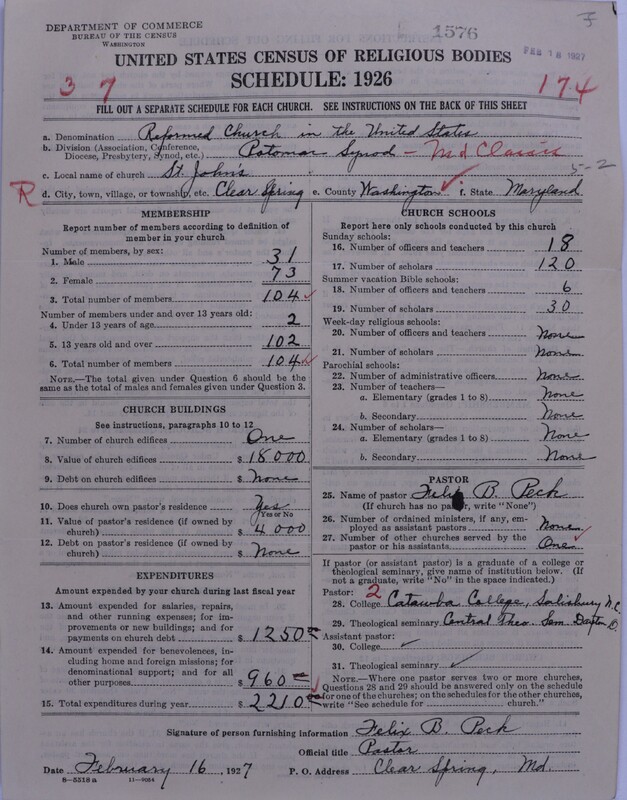 DEPARTMENT OF COMMERCE
BUREAU OF THE CENSUS
WASHINGTON
1576
FEB 18 1927
UNITED STATES CENSUS OF RELIGIOUS BODIES
SCHEDULE: 1926
37
174
FILL OUT A SEPARATE SCHEDULE FOR EACH CHURCH. SEE INSTRUCTIONS ON THE BACK OF THIS SHEET
a. Denomination Reformed Church in the United States
b. Division (Association, Conference, Diocese, Presbytery, Synod, etc.) Potomac Synod - Md Classis
5-2
c. Local name of church St. Johns
R
d. City, town, village, or township, etc. Clear Spring e. County Washington f. State Maryland
MEMBERSHIP
Report number of members according to definition of
member in your church
Number of members, by sex:
1. Male 31
2. Female 73
3. Total number of members 104
Number of members under and over 13 years old:
4. Under 13 years of age 2
5. 13 years old and over 102
6. Total number of members 104
NOTE.—The total given under Question 6 should be
the same as the total of males and females given under Question 3.
CHURCH BUILDINGS
See instructions, paragraphs 10 to 12
7. Number of church edifices One
8. Value of church edifices $ 18000
9. Debt on church edifices $ None
10. Does church own pastor's residence Yes
Yes or No
11. Value of pastor's residence (if owned by
church) $ 4000
12. Debt on pastor's residence (if owned by
church) $ None
EXPENDITURES
Amount expended by your church during last fiscal year
13. Amount expended for salaries, repairs,
and other running expenses; for im-
provements or new buildings; and for
payments on church debt $ 1250
14. Amount expended for benevolences, in-
cluding home and foreign missions; for
denominational support; and for all
other purposes $ 960
15. Total expenditures during year $ 2210
CHURCH SCHOOLS
Report here only schools conducted by this church
Sunday schools:
16. Number of officers and teachers 18
17. Number of scholars 120
Summer vacation Bible schools:
18. Number of officers and teachers 6
19. Number of scholars 30
Week-day religious schools:
20. Number of officers and teachers None
21. Number of scholars None
Parochial schools:
22. Number of administrative officers None
23. Number of teachers—
a. Elementary (grades 1 to 8) None
b. Secondary None
24. Number of scholars—
a. Elementary (grades 1 to 8) None
b. Secondary None
PASTOR
25. Name of pastor Felix B. Peck
(If church has no pastor, write "None")
26. Number of ordained ministers, if any, em-
ployed as assistant pastors None
27. Number of other churches served by the
pastor or his assistants One
If pastor (or assistant pastor) is a graduate of a college or
theological seminary, give name of institution below. (If
not a graduate, write "No" in the space indicated.)
Pastor: 2
28. College Catawba College, Salisbury N.C.
29. Theological seminary Central Theo. Sem. Dayton O.
Assistant pastor:
30. College
31. Theological seminary
NOTE.—Where one pastor serves two or more churches,
Questions 28 and 29 should be answered only on the schedule
for one of the churches; on the schedules for the other churches,
write "See schedule for church."
Signature of person furnishing information Felix B. Peck
Official title Pastor
Date February 16, 1927 P. O. Address Clear Spring, Md.
8-5518a 11-9024